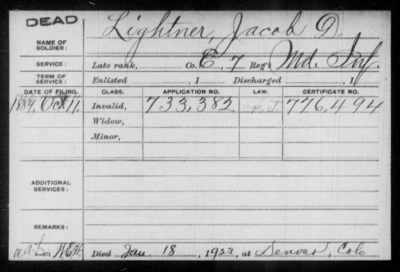 DEAD
NAME OF SOLDIER: Lightner, Jacob D.
SERVICE: Late rank, Co. E, 7 Reg't Md. Inf.
TERM OF SERVICE: Enlisted , 1 Discharged , 1
DATE OF FILING. CLASS. APPLICATION NO. LAW. CERTIFICATE NO.
1889, Oct. 11. Invalid, 733,382 776,494
Widow,
Minor,
ADDITIONAL SERVICES:
REMARKS:
Died Jan. 18, 1923, at Denver, Colo